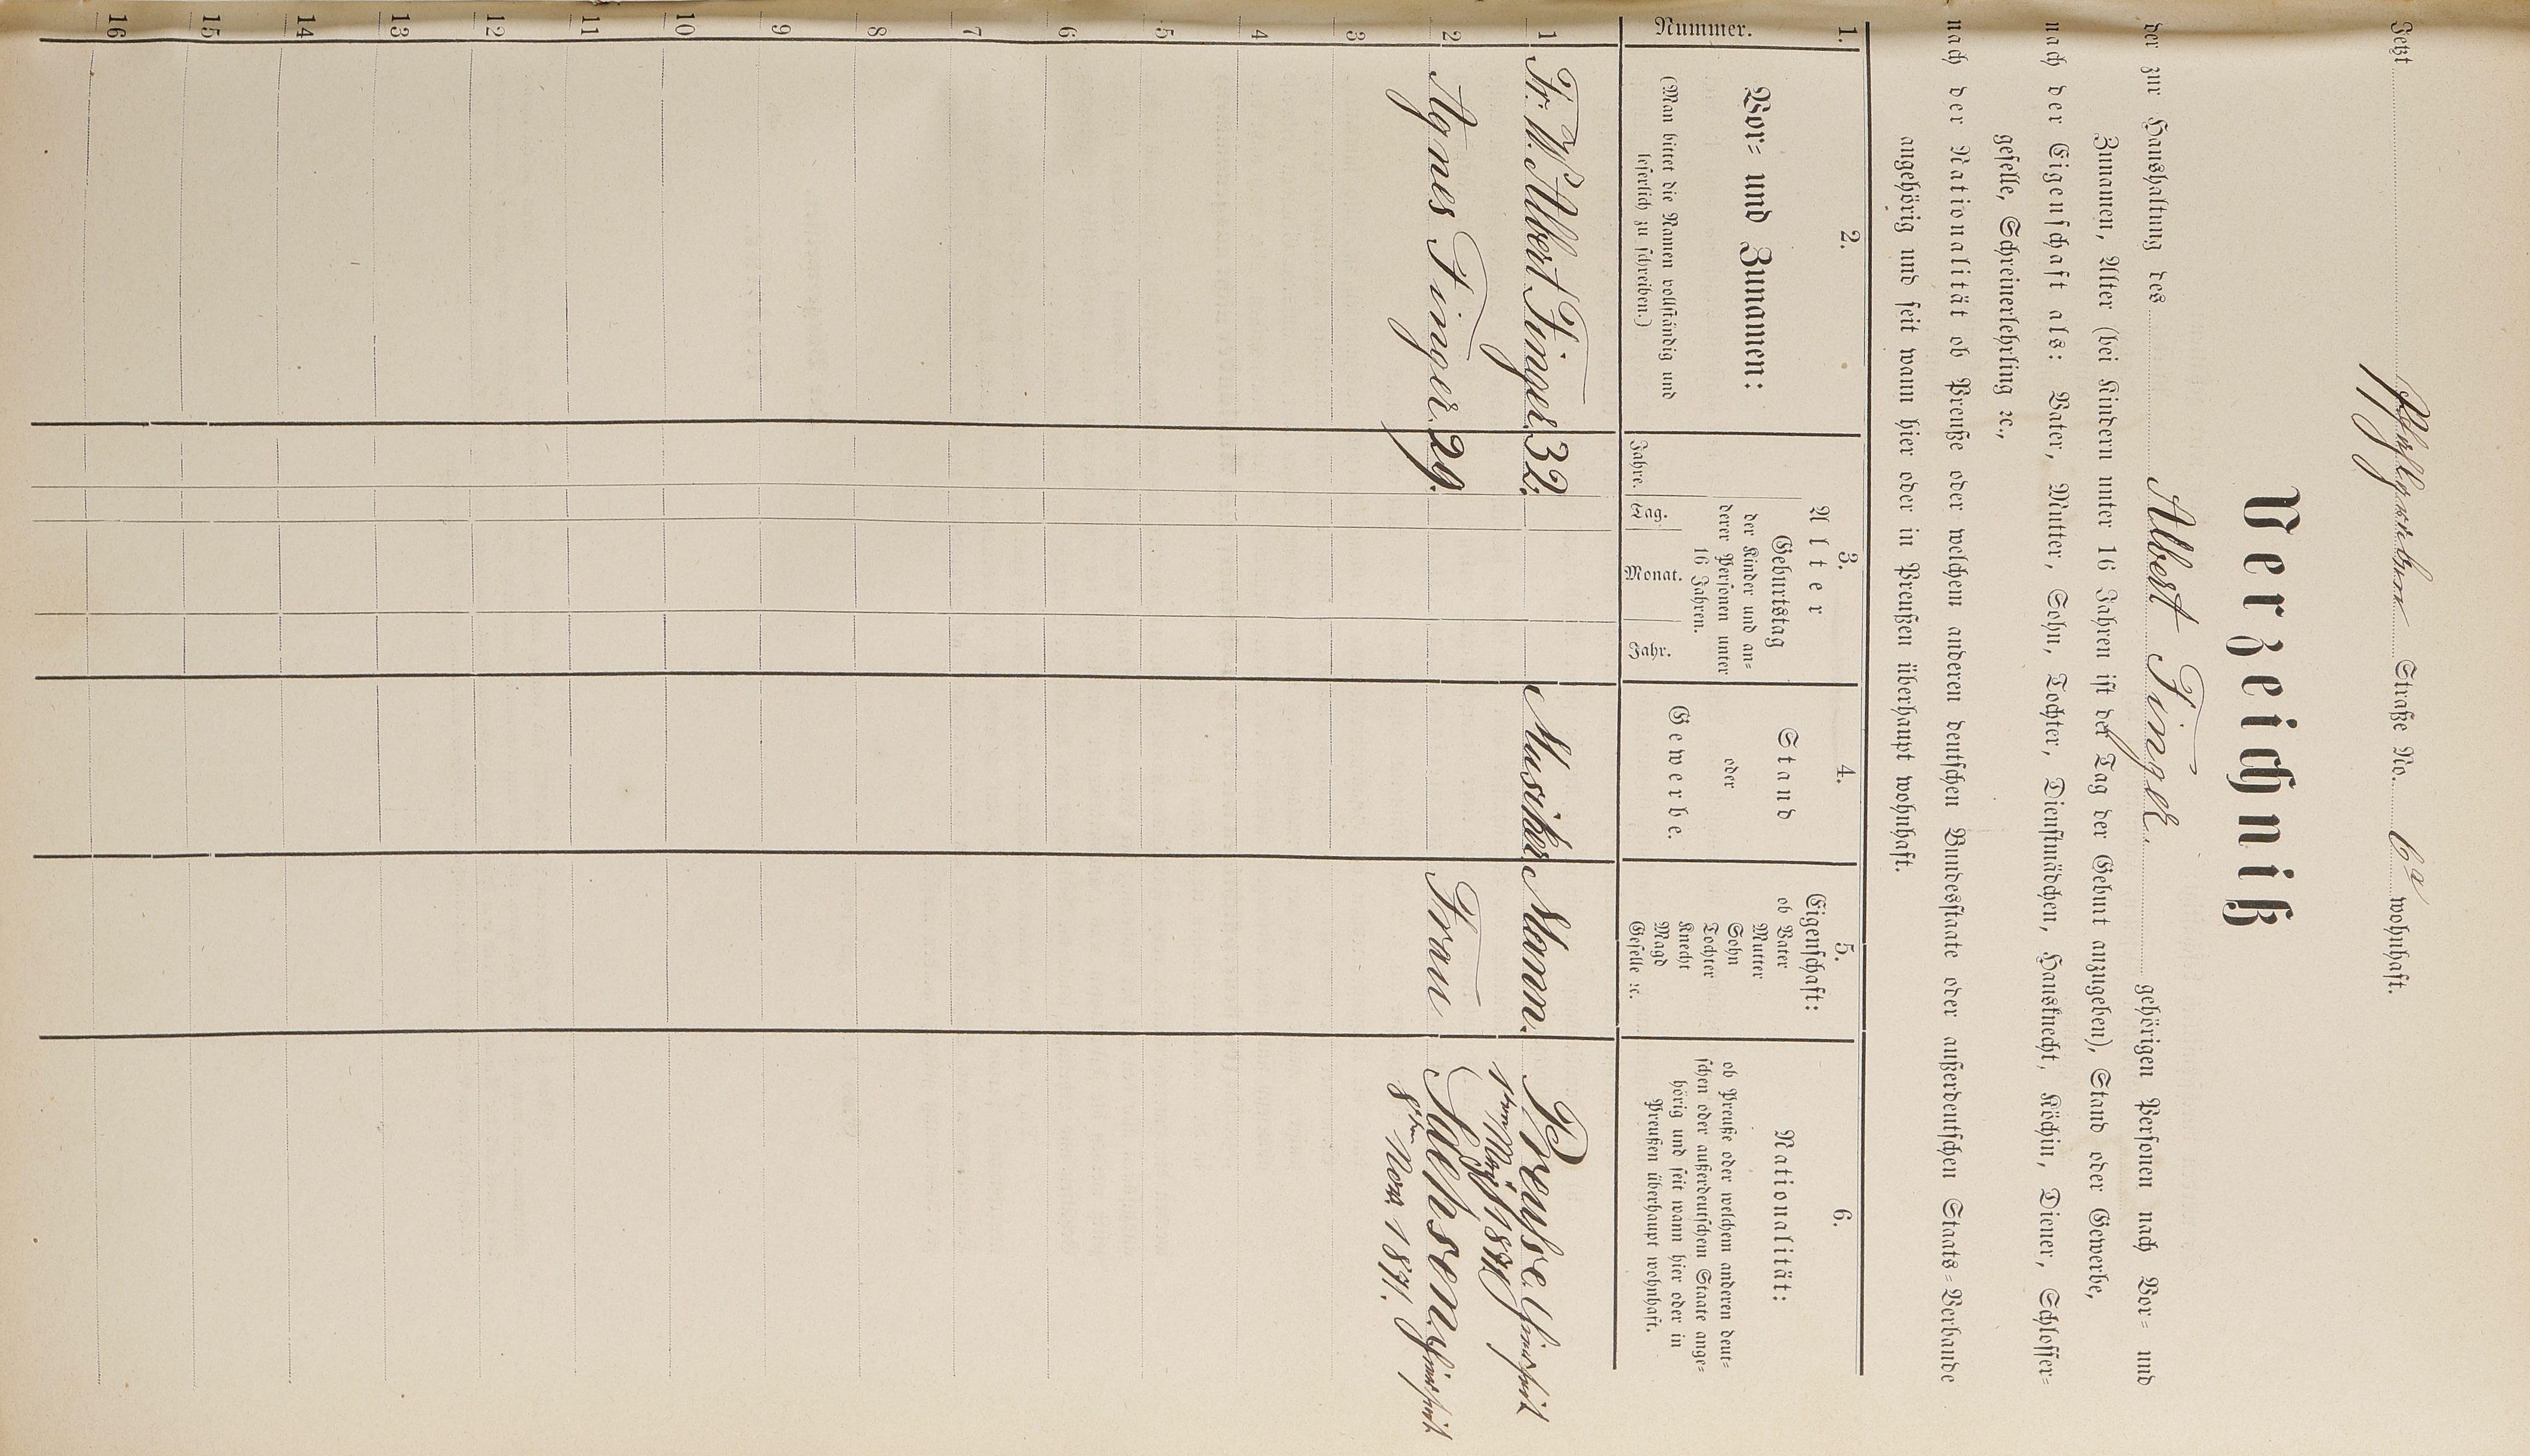 Jetzt Straße No. 6a wohnhaft.
Verzeichniß
der zur Haushaltung des Albert Finger. gehörigen Personen nach Vor= und
Zunamen, Alter (bei Kindern unter 16 Jahren ist der Tag der Geburt anzugeben), Stand oder Gewerbe,
nach der Eigenschaft als: Vater, Mutter, Sohn, Tochter, Dienstmädchen, Hausknecht, Köchin, Diener, Schlosser=
geselle, Schreinerlehrling ꝛc.,
nach der Nationalität ob Preuße oder welchem anderen deutschen Bundesstaate oder außerdeutschen Staats=Verbande
angehörig und seit wann hier oder in Preußen überhaupt wohnhaft.
1. 2. 3. 4. 5. 6.
Nummer.
Vor= und Zunamen:
(Man bittet die Namen vollständig und
leserlich zu schreiben.)
Alter
Geburtstag
der Kinder und an=
derer Personen unter
16 Jahren.
Jahre. Tag. Monat. Jahr.
Stand
oder
Gewerbe.
Eigenschaft:
ob Vater
Mutter
Sohn
Tochter
Knecht
Magd
Geselle ꝛc.
Nationalität:
ob Preuße oder welchem anderen deut=
schen oder außerdeutschem Staate ange=
hörig und seit wann hier oder in
Preußen überhaupt wohnhaft.
1 Fr. W. Albert Finger. 32. Musiker Mann. Preusse. (hier seit
1871)
2 Agnes Finger. 29. Frau Sachsen. (hier seit
8ten Nov. 1871.
3
4
5
6
7
8
9
10
11
12
13
14
15
16